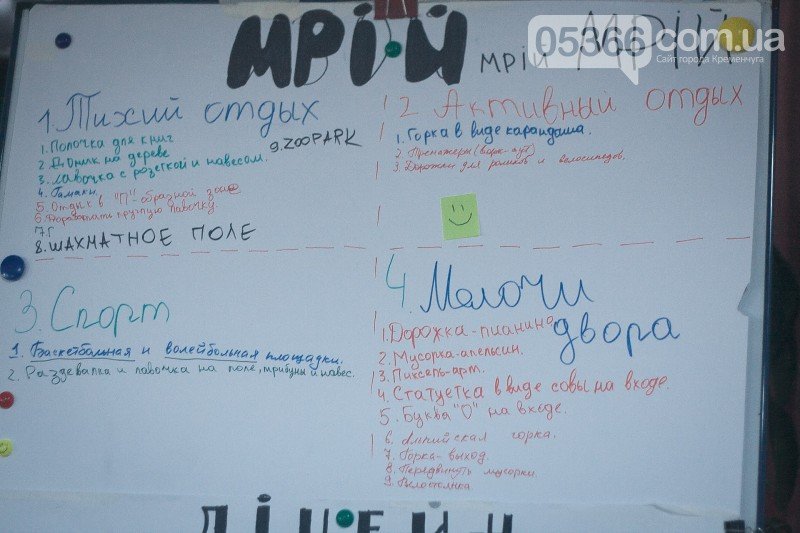 МРІЙ мрій МРІЙ
05366.com.ua
Сайт города Кременчуга
1. Тихий отдых
1. Полочка для книг
2. Домик на дереве
3. Лавочка с розеткой и навесом.
4. Гамаки.
5. Отдых в "П"-образной зоне
6. Доработать круглую лавочку.
7 Г
8. ШАХМАТНОЕ ПОЛЕ
9. ZOOPARK
2 Активный отдых
1. Горка в виде карандаша.
2. Тренажеры (ворк-аут)
3. Дорожки для роликов и велосипедов.
3. Спорт
1. Баскетбольная и волейбольная площадки.
2. Раздевалка и лавочка на поле, трибуны и навес.
4. Мелочи двора
1. Дорожка-пианино
2. Мусорка-апельсин.
3. Пиксель-арт.
4. Статуетка в виде совы на входе.
5. Буква "О" на входе.
6. горка.
7. Горка-выход.
8. Передвинуть мусорки.
9. Велостоянка.
ЛІЦЕЙ